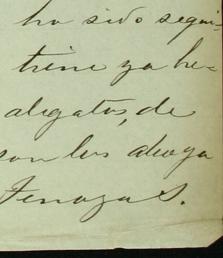 ha sido segui-
tiene ya he-
alegatos, de
son los aboga
Tenazas.